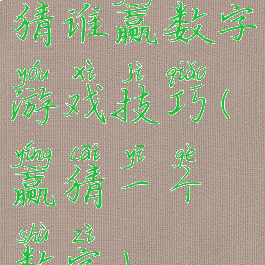 猜谁赢数字
yóu xì jì qiǎo
游戏技巧(
yíng cāi yī gè
赢猜一个
shù zì
数字)